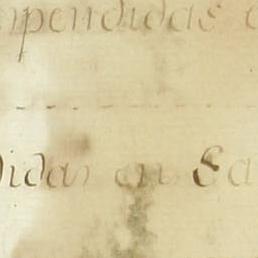 npendidas
didas en Sa